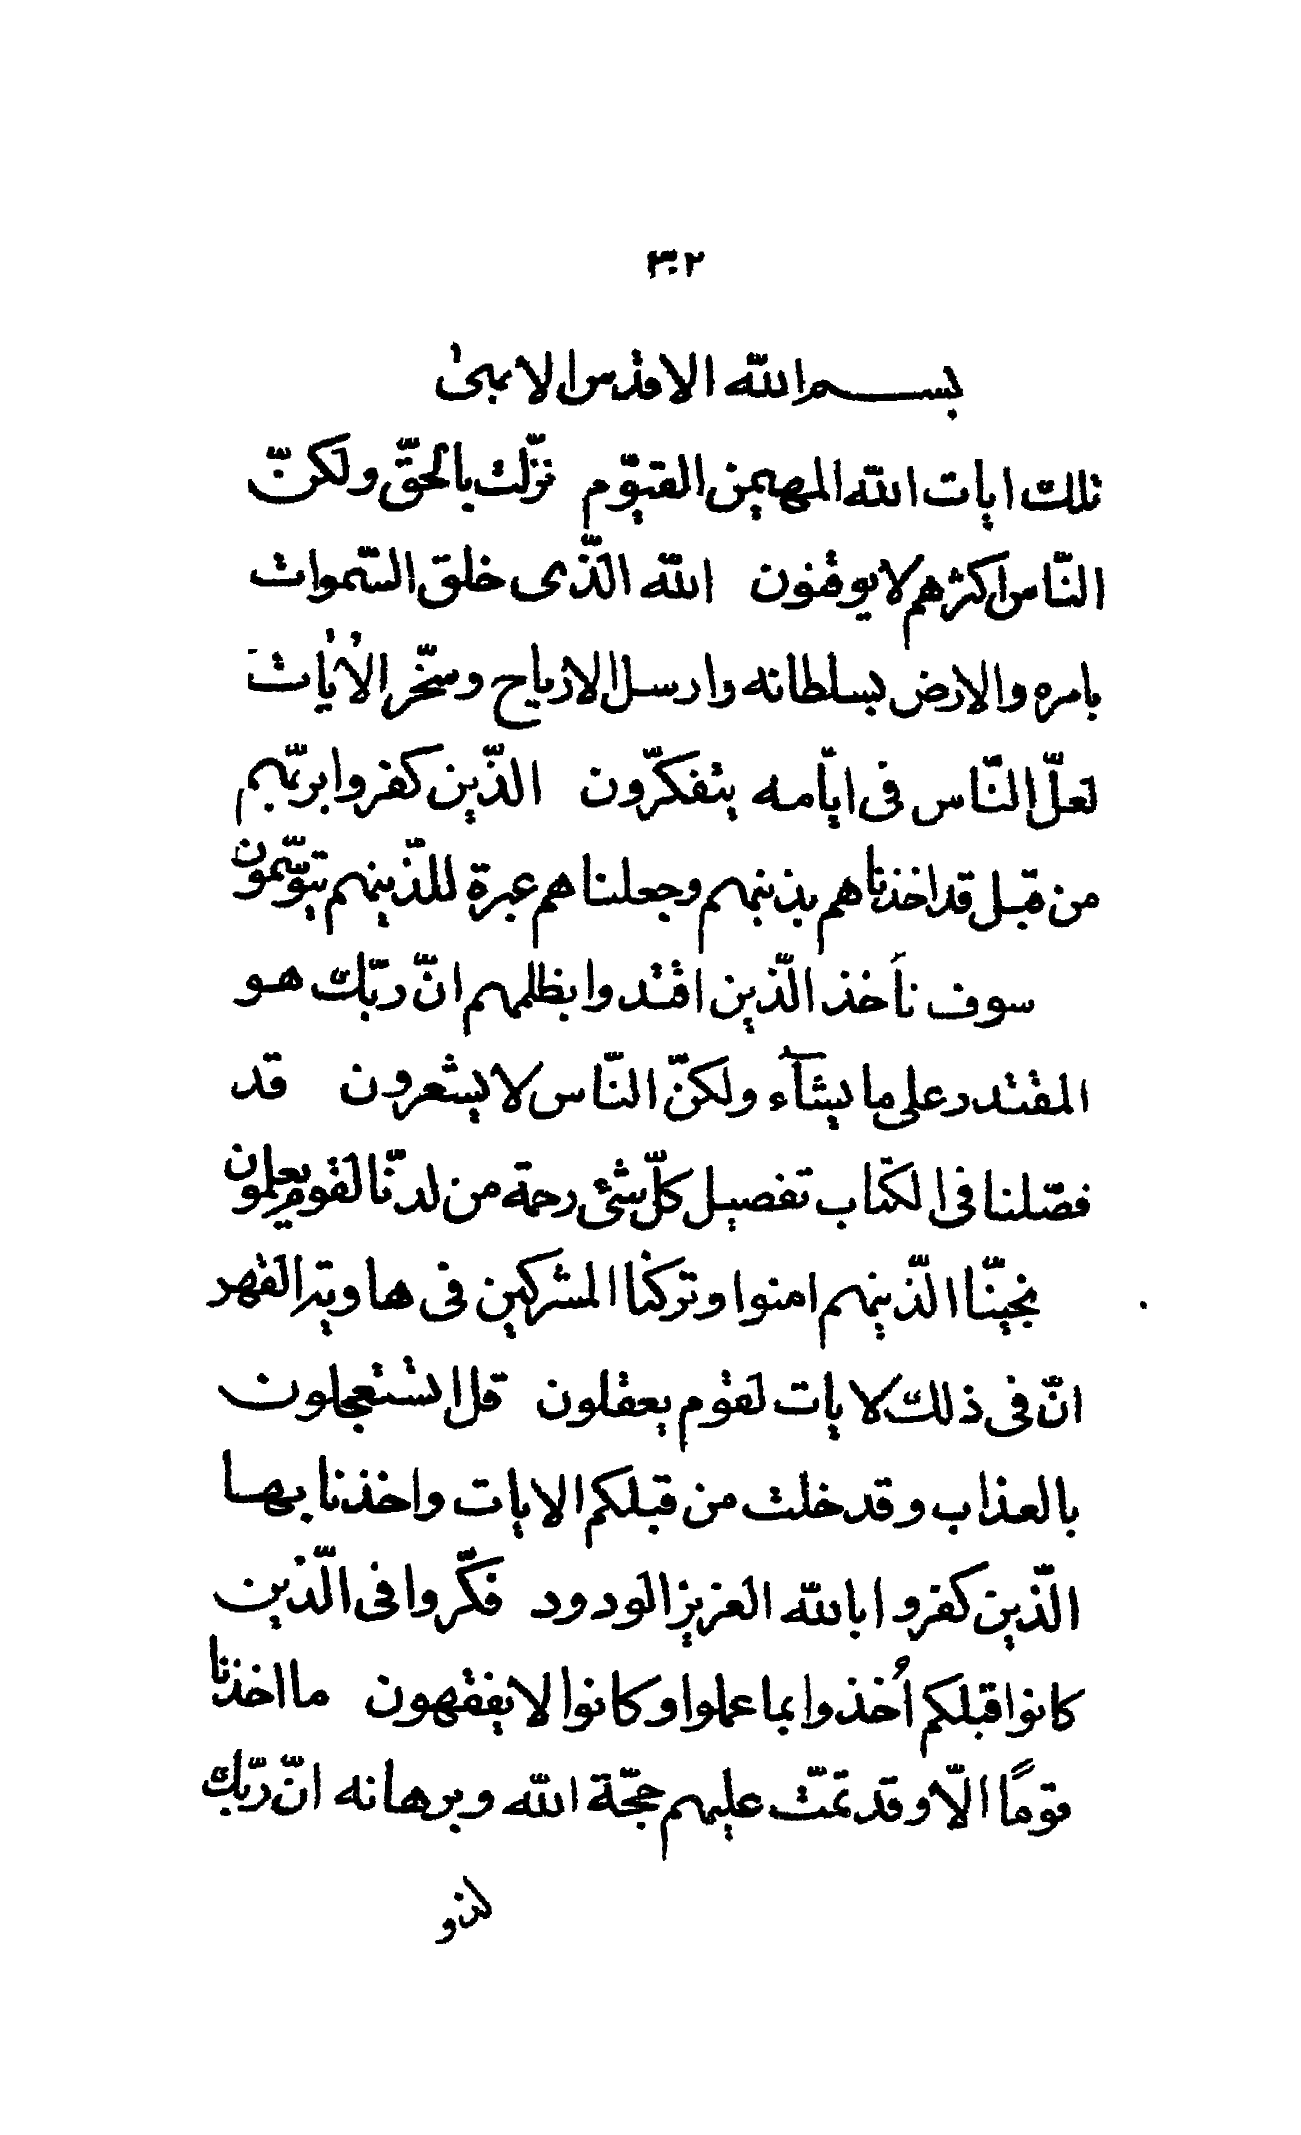 ٣٠٢
بسم الله الاقدس الابهىٰ
تلك ايات الله المهيمن القيّوم نزّلت بالحقّ ولكنّ
النّاس اكثرهم لا يوقنون الله الّذى خلق السّموات
بامره والارض بسلطانه وارسل الارياح وسخّر الأيات
لعلّ النّاس فى ايّامه يتفكرّون الّذين كفروا بربّهم
من قبل قد اخذناهم بذنبهم وجعلناهم عبرة للّذينهم يتوّسمون
سوف نأخذ الّذين اقتدوا بظلمهم انّ ربّك هو
المقتدر على ما يشآء ولكنّ النّاس لا يشعرون قد
فصّلنا فى الكتاب تفصيل كلّ شئ رحمة من لدنّا لقوم يعلمون
نجيّنا الّذينهم امنوا وتركنا المشركين فى هاوية القهر
انّ فى ذلك لايات لقوم يعقلون قل اتستعجلون
بالعذاب وقد خلت من قبلكم الايات واخذنا بها
الّذين كفروا بالله العزيز الودود فكّروا فى الّذين
كانوا قبلكم أُخذوا بما عملوا وكانوا لا يفقهون ما اخذنا
قومًا الّا وقد تمّت عليهم حجّة الله وبرهانه انّ ربّك
لذو